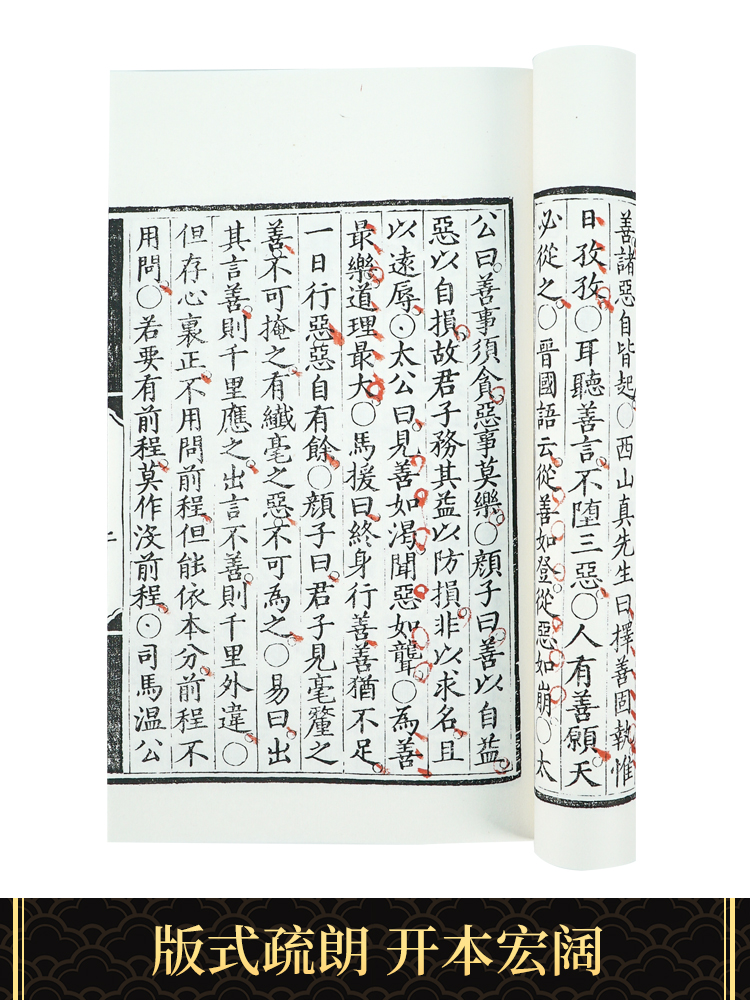 善諸惡自皆起〇西山真先生曰擇善固執惟
日孜孜〇耳聽善言不墮三惡〇人有善願天
必從之〇晉國語云從善如登從惡如崩〇太
公曰善事須貪惡事莫樂〇顏子曰善以自益
惡以自損故君子務其益以防損非以求名且
以遠辱〇太公曰見善如渴聞惡如聾〇為善
最樂道理最大〇馬援曰終身行善善猶不足
一日行惡惡自有餘〇顏子曰君子見毫釐之
善不可掩之有纖毫之惡不可為之〇易曰出
其言善則千里應之出言不善則千里外違〇
但存心裏正不用問前程但能依本分前程不
用問〇若要有前程莫作沒前程〇司馬溫公
版式疏朗 开本宏阔